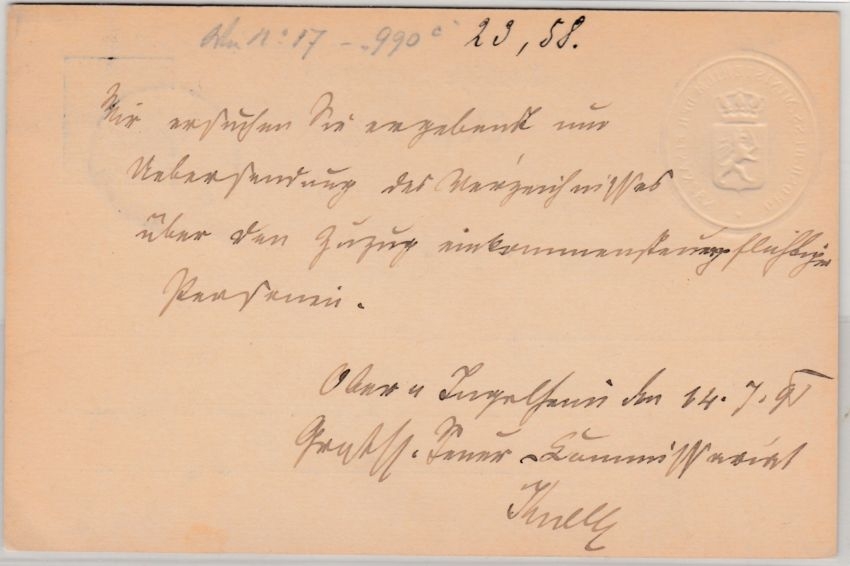 23,58.
Wir ersuchen Sie ergebenst um
Uebersendung des Verzeichnisses
über den Zuzug einkommensteuerpflichtiger
Personen.
Ober Ingelheim den 14. 7. 9
Grossh. Steuer-Commissariat